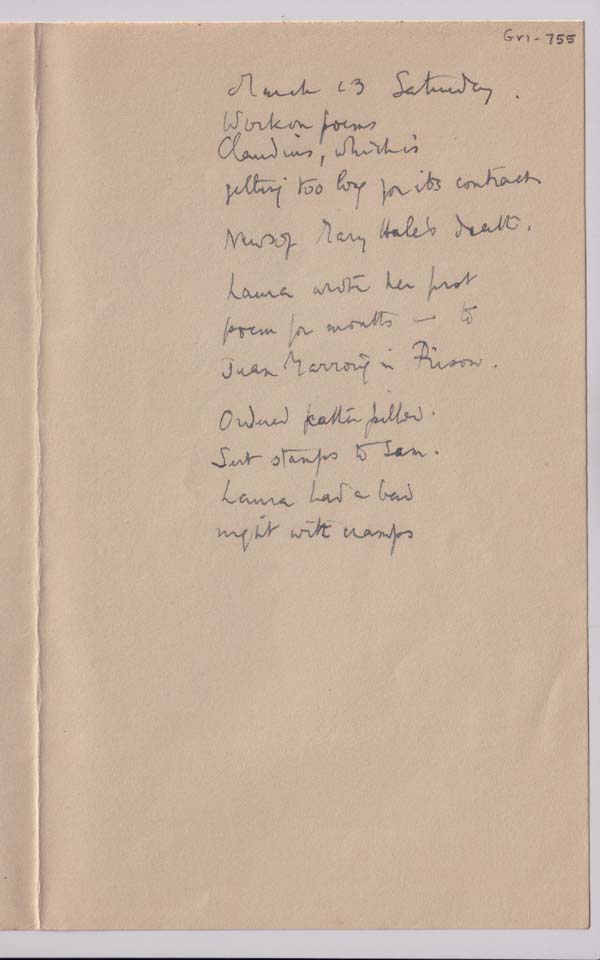 Gr1-755
March 13 Saturday.
Work on poems
Claudius, which is
getting too long for its contract
News of Mary Hale's death.
Laura wrote her first
poem for months — to
Juan Marroig in Prison.
Ordered pillow.
Sent stamps to Sam.
Laura had a bad
night with cramps